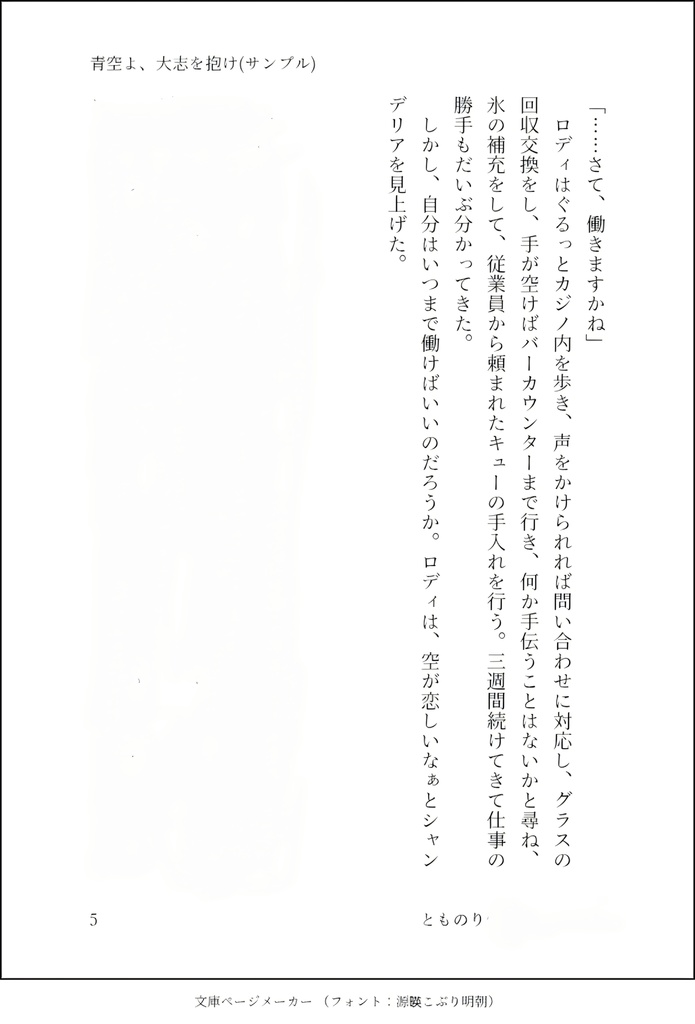 青空よ、大志を抱け(サンプル)
「……さて、働きますかね」
　ロディはぐるっとカジノ内を歩き、声をかけられれば問い合わせに対応し、グラスの
回収交換をし、手が空けばバーカウンターまで行き、何か手伝うことはないかと尋ね、
氷の補充をして、従業員から頼まれたキューの手入れを行う。三週間続けてきて仕事の
勝手もだいぶ分かってきた。
　しかし、自分はいつまで働けばいいのだろうか。ロディは、空が恋しいなぁとシャン
デリアを見上げた。
とものり
5
文庫ページメーカー（フォント：源暎こぶり明朝）